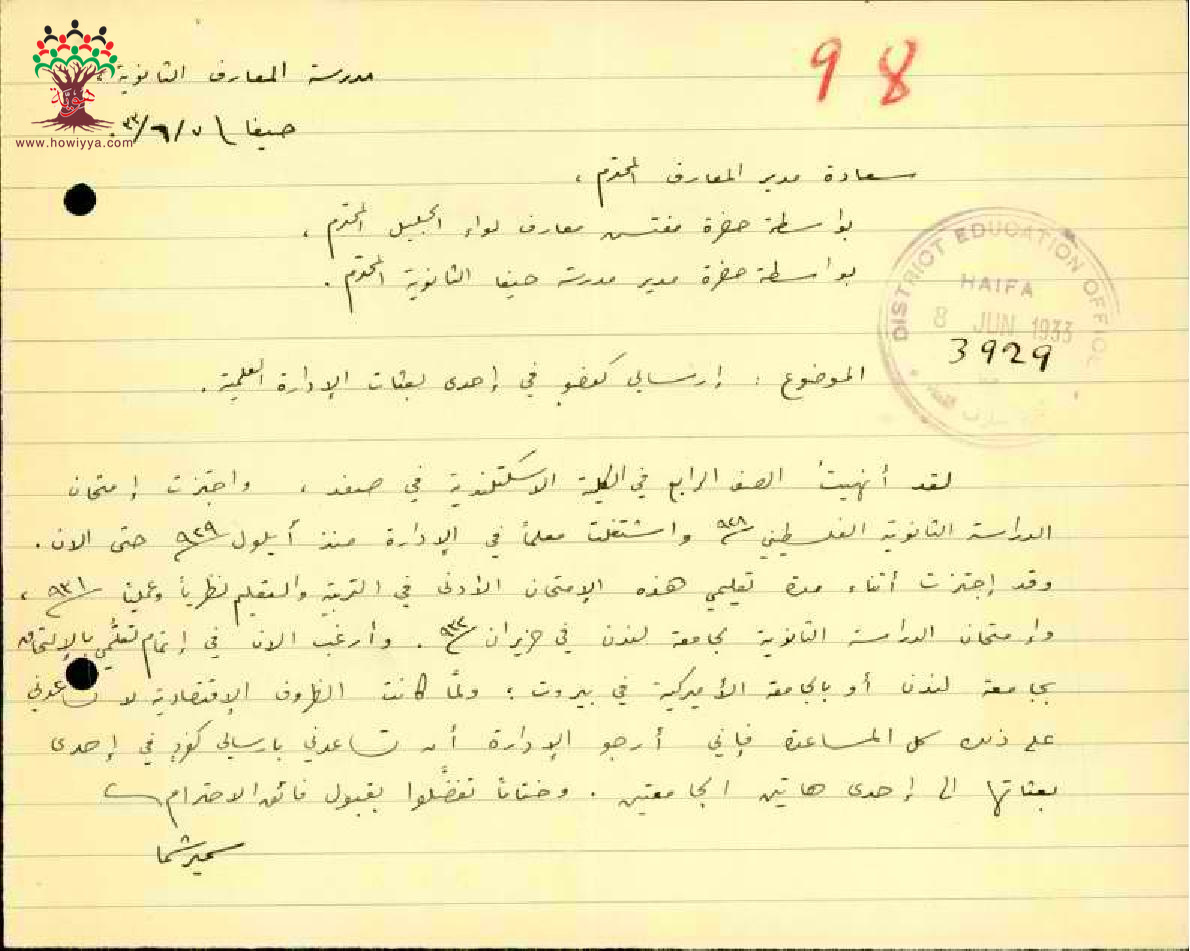 98
مدرسة المعارف الثانوية،
حيفا ٧/٦/٣٣.
هوية
www.howiyya.com
سعادة مدير المعارف المحترم،
بواسطة حضرة مفتش معارف لواء الجليل المحترم،
بواسطة حضرة مدير مدرسة حيفا الثانوية المحترم.
DISTRICT EDUCATION OFFICE
HAIFA
8 JUN 1933
3929
الموضوع: إرسالي كعضو في إحدى بعثات الإدارة العلمية.
لقد أنهيتُ الصف الرابع في الكلية الاسكتلندية في صفد، واجتزت إمتحان
الدراسة الثانوية الفلسطيني ٩٢٨ واشتغلت معلماً في الإدارة منذ أيلول ٩٢٩ حتى الان.
وقد إجتزت أثناء مدة تعليمي هذه الإمتحان الأدنى في التربية والتعليم نظرياً وعملياً ٩٣١،
وإمتحان الدراسة الثانوية لجامعة لندن في حزيران ٩٣٢. وأرغب الان في إتمام تعلّمي بالإلتحاق
بجامعة لندن أو بالجامعة الأميركية في بيروت؛ ولمّا كانت الظروف الإقتصادية لا تساعدني
على ذلك كل المساعدة فإني أرجو الإدارة أن تساعدني بارسالي كفرد في إحدى
بعثاتها الى إحدى هاتين الجامعتين. وختاماً تفضّلوا بقبول فائق الاحترام
سمير شما